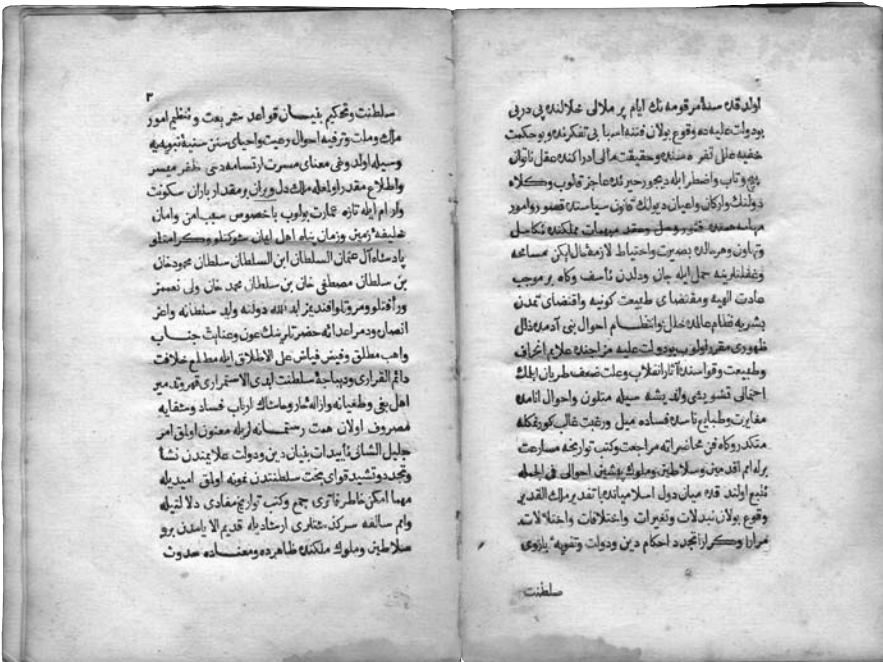 اولدقده سنهٔ مرقومه نك ايام پر ملالى خلالنده پى درپى
بو دولت عليه ده وقوع بولان فتنه اسبابى تفكرنده و بو حكمت
خفيه علل تفرسنده و حقيقت مآلى ادراكنده عقل ناتوان
پيچ و تاب و اضطراب ايله ديجور حيرتده عاجز قالوب وكلاء
دولتك و اركان و اعيان ديوانك قانون سياستده قصور و امور
مهامه سنده فتور و حل و عقد مبهمات مملكتده تكاسل
و تهاون و هر حالده بصيرت و احتياط لازمه شال ايكن مسامحه
و غفلتلرينه حمل ايله جان و دلدن تأسف و كاه بر موجب
عادت الهيه و مقتضاى طبيعت كونيه و اقتضاى تمدن
بشريه نظام عالمده خلل و انتظام احوال بنى آدمده ذلل
ظهورى مقرر اولوب بو دولت عليه مزاجنده علايم انحراف
و طبيعت و قواسنده آثار انقلاب و علت ضعف طريان ايلمك
احتمالى تشويشى و انديشه سيله متلون و احوال انامده
مغايرت و طبايع ناسده فساده ميل و رغبت غالب كورنمكله
متكدر و كاه فن محاضراته مراجعت و كتب تواريخه مسارعت
برله امم اقدمين و سلاطين و ملوك پيشين احوالى فى الجمله
تتبع اولندقده ميان دول اسلاميانده با تقدير ملك القدير
وقوع بولان تبدلات و تغيرات و اختلافات و اختلالات
مرارا و كرارا تجدد احكام دين و دولت و تقويهٔ بازوى
سلطنت
٣
سلطنت و تحكيم بنيان قواعد شريعت و تنظيم امور
ملك و ملت و ترفيه احوال رعيت و احياى سنن سنيهٔ نبويه يه
وسيله اولدوغى معناى مسرت ارتسامه دخى ظفر ميسر
و اطلاع مقدر اولمغله ملك دل ويران بر مقدار باران سكونت
و آرام ايله تازه عمارت بولوب باخصوص سبب امن و امان
خليفهٔ زمين و زمان پناه اهل ايمان شوكتلو و كرامتلو
پادشاه آل عثمان السلطان ابن السلطان سلطان محمود خان
بن سلطان مصطفى خان بن سلطان محمد خان ولى نعمتمز
و رأفتلو و مروتلو افنديمز ايد الله دولته و ابد سلطنته و اعز
انصاره و دمر اعدائه حضرتلرينك عون و عنايت جناب
واهب مطلق و فيض فياض على الاطلاق ايله مطلع خلافت
دائم القرارى و ديباجهٔ سلطنت ابدى الاستمرارى قهر و تدمير
اهل بغى و طغيانه و ازالهٔ خار و خاشاك ارباب فساد و شقايه
مصروف اولان همت رستمانه لريله معنون اولمق امر
جليل الشانى تأييدات بنيان دين و دولت علايمندن نشأ
و تجدد و تشييد قواى بخت سلطنتدن نمونه اولمق اميديله
مهما امكن خاطر فاترى جمع و كتب تواريخ مفادى دلالتيله
و امم سالفه سركذشتلرى ارشاديله قديم الايامدن برو
سلاطين و ملوك ملكنده ظاهرده و معناده حدوث